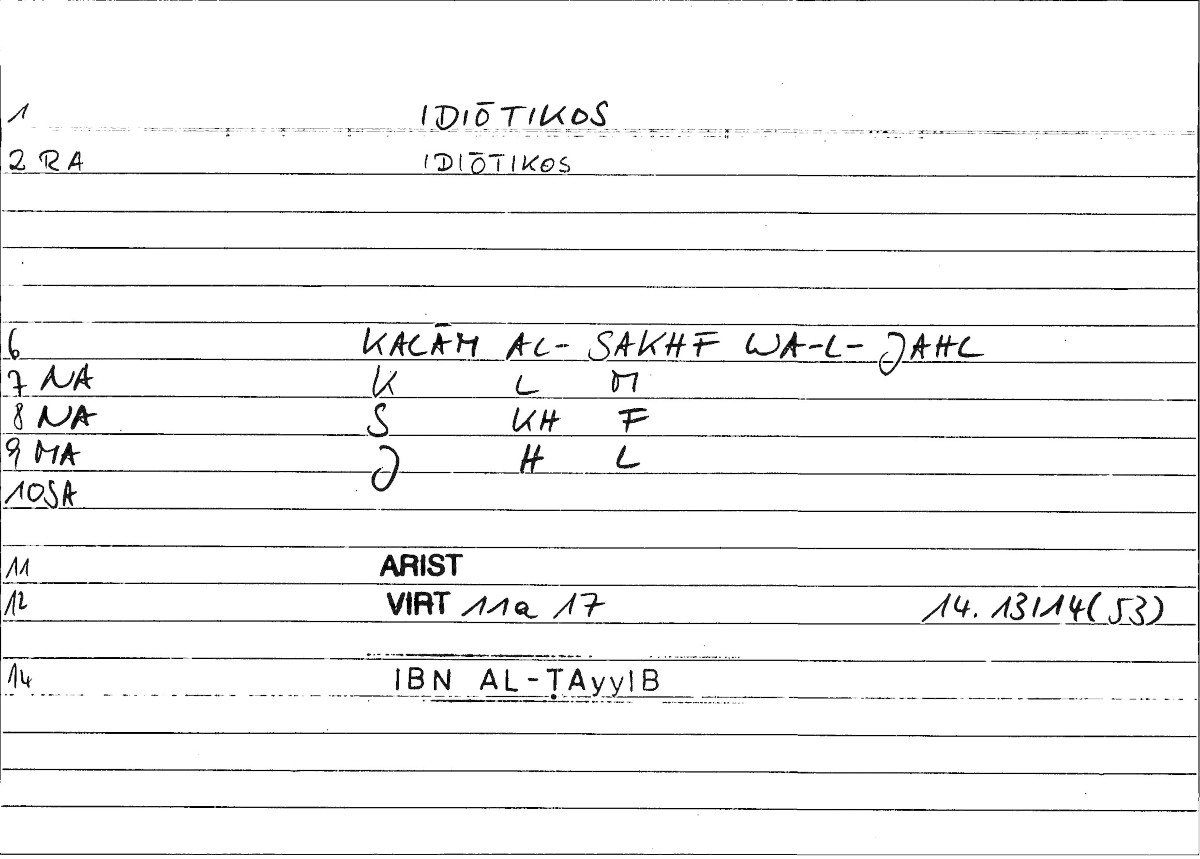 1 IDIŌTIKOS
2 RA IDIŌTIKOS
6 KALĀM AL- SAKHF WA-L- JAHL
7 NA K L M
8 NA S KH F
9 MA J H L
10 SA
11 ARIST
12 VIRT 11a 17 14. 13/14(53)
14 IBN AL-ṬAyyIB